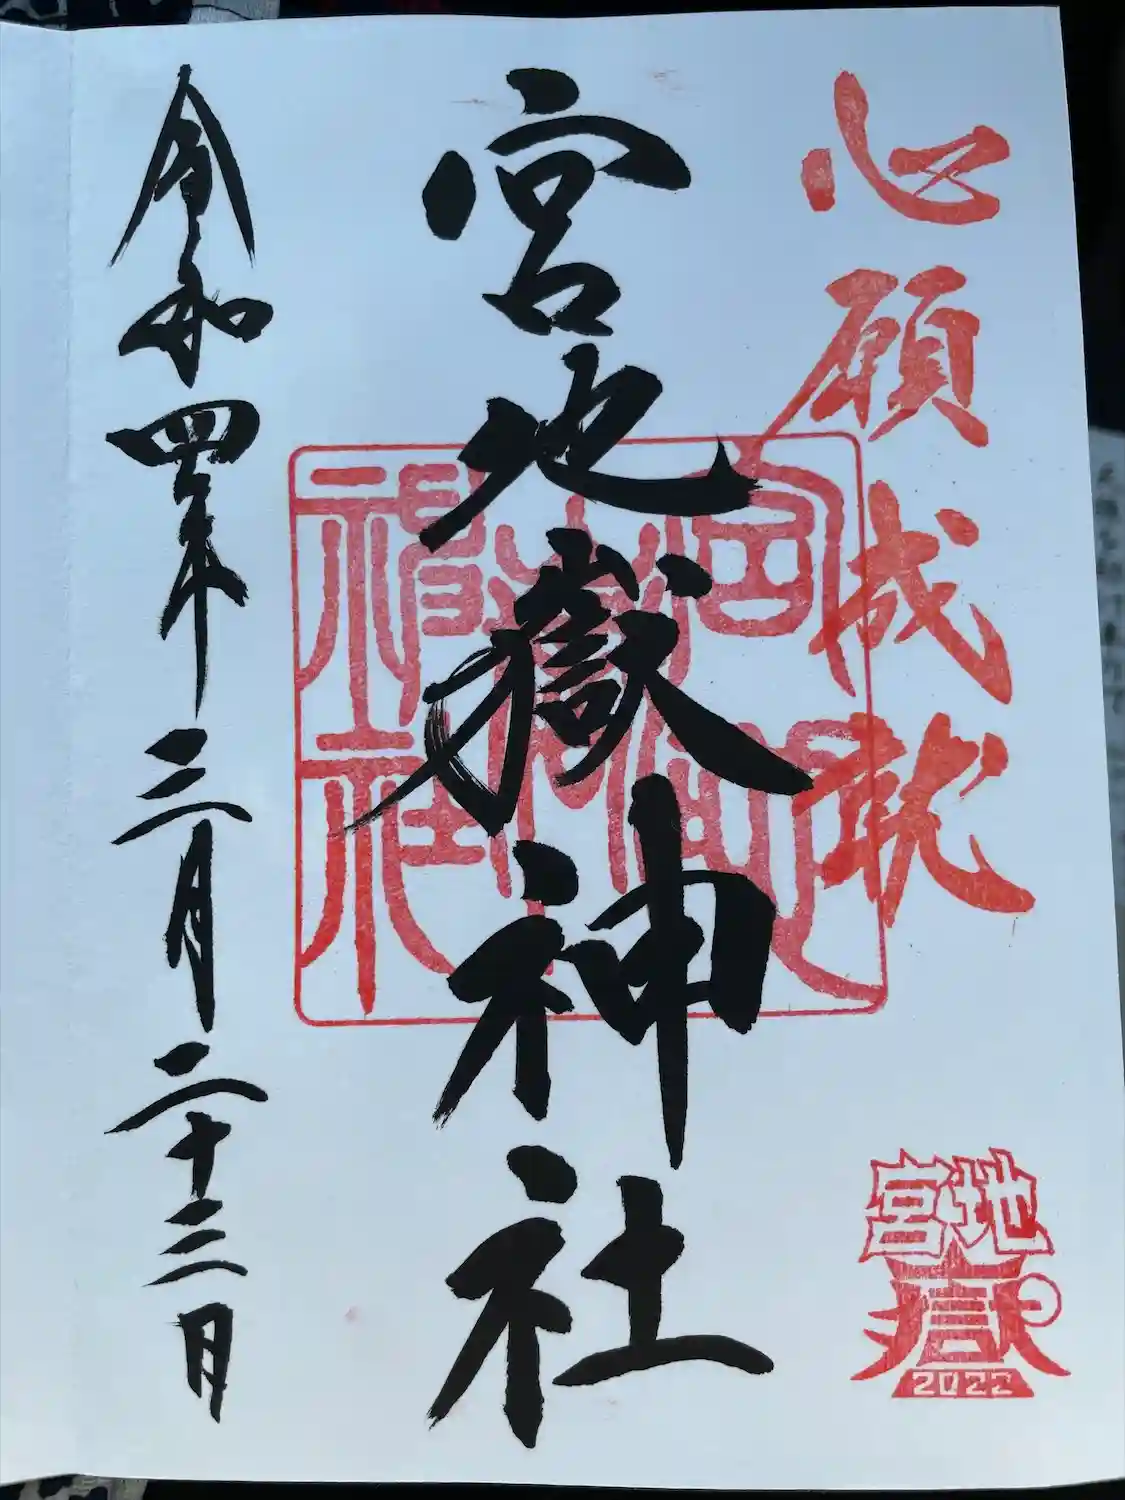 心願成就
宮地嶽神社
令和四年三月二十三日
宮地
嶽
2022